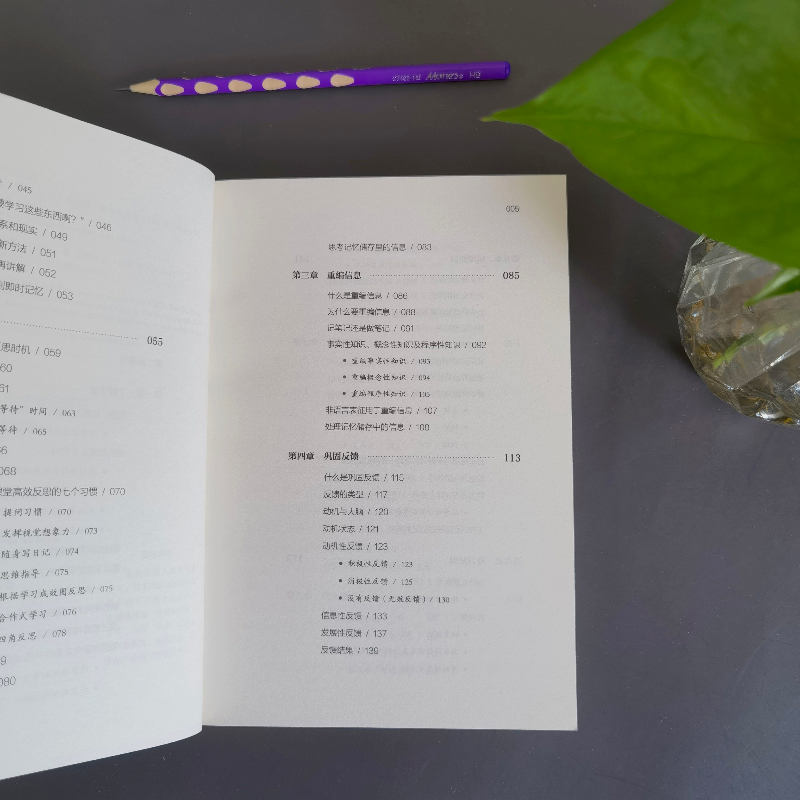 ” / 045
学习这些东西啊？” / 046
系和现实 / 049
新方法 / 051
再讲解 / 052
到即时记忆 / 053
055
思时机 / 059
060
061
等待”时间 / 063
等待 / 065
66
068
课堂高效反思的七个习惯 / 070
提问习惯 / 070
发挥视觉想象力 / 073
随身写日记 / 074
思维指导 / 075
根据学习成效图反思 / 075
合作式学习 / 076
四角反思 / 078
9
080
005
思考记忆储存里的信息 / 083
第三章 重编信息 085
什么是重编信息 / 086
为什么要重编信息 / 088
记笔记还是做笔记 / 091
事实性知识、概念性知识及程序性知识 / 092
• 重编事实性知识 / 093
• 重编概念性知识 / 094
• 重编程序性知识 / 105
非语言表征用于重编信息 / 107
处理记忆储存中的信息 / 108
第四章 巩固反馈 113
什么是巩固反馈 / 115
反馈的类型 / 117
动机与大脑 / 120
动机状态 / 121
动机性反馈 / 123
• 积极性反馈 / 123
• 消极性反馈 / 125
• 没有反馈（无效反馈）/ 130
信息性反馈 / 133
发展性反馈 / 137
反馈结果 / 139